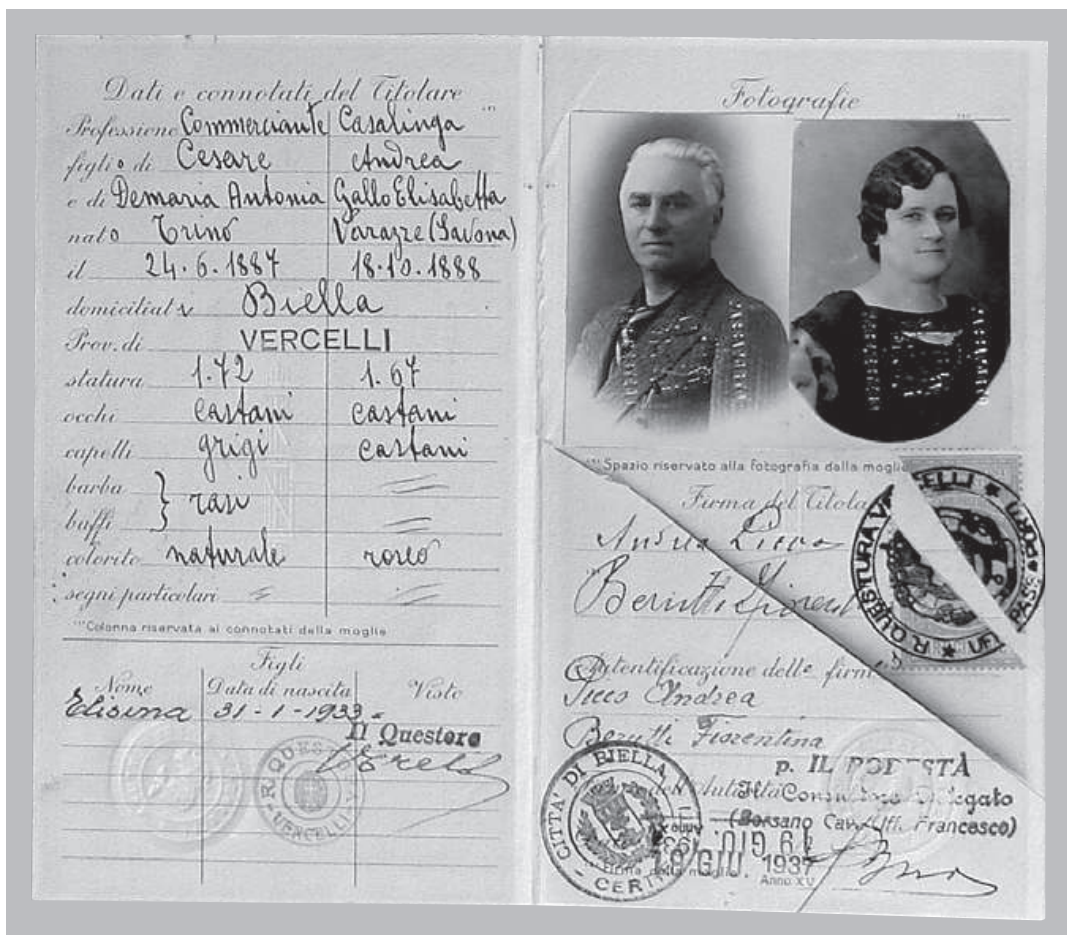 Dati e connotati del Titolare
Professione Commerciante Casalinga
figlio di Cesare Andrea
e di Demaria Antonia Gallo Elisabetta
nato Trino Varazze (Savona)
il 24.6.1887 18.10.1888
domiciliat Biella
Prov. di VERCELLI
statura 1.72 1.67
occhi castani castani
capelli grigi castani
barba
rasi
baffi
colorito naturale roseo
segni particolari
Colonna riservata ai connotati della moglie
Figli
Nome Data di nascita Visto
Elisina 31-1-1933
Il Questore
R. QUESTURA VERCELLI
Fotografie
Spazio riservato alla fotografia della moglie
Firma del Titola
Andrea
Berutti
R. QUESTURA VERCELLI
PASSAPORTI
Autentificazione delle firm
Andrea
Berutti Fiorentina
p. IL PODESTÀ
dell'Autorità
Il Consultore Delegato
(Borsano Cav. Uff. Francesco)
CITTA' DI BIELLA
GIU. 1937
Anno XV
Firma della moglie